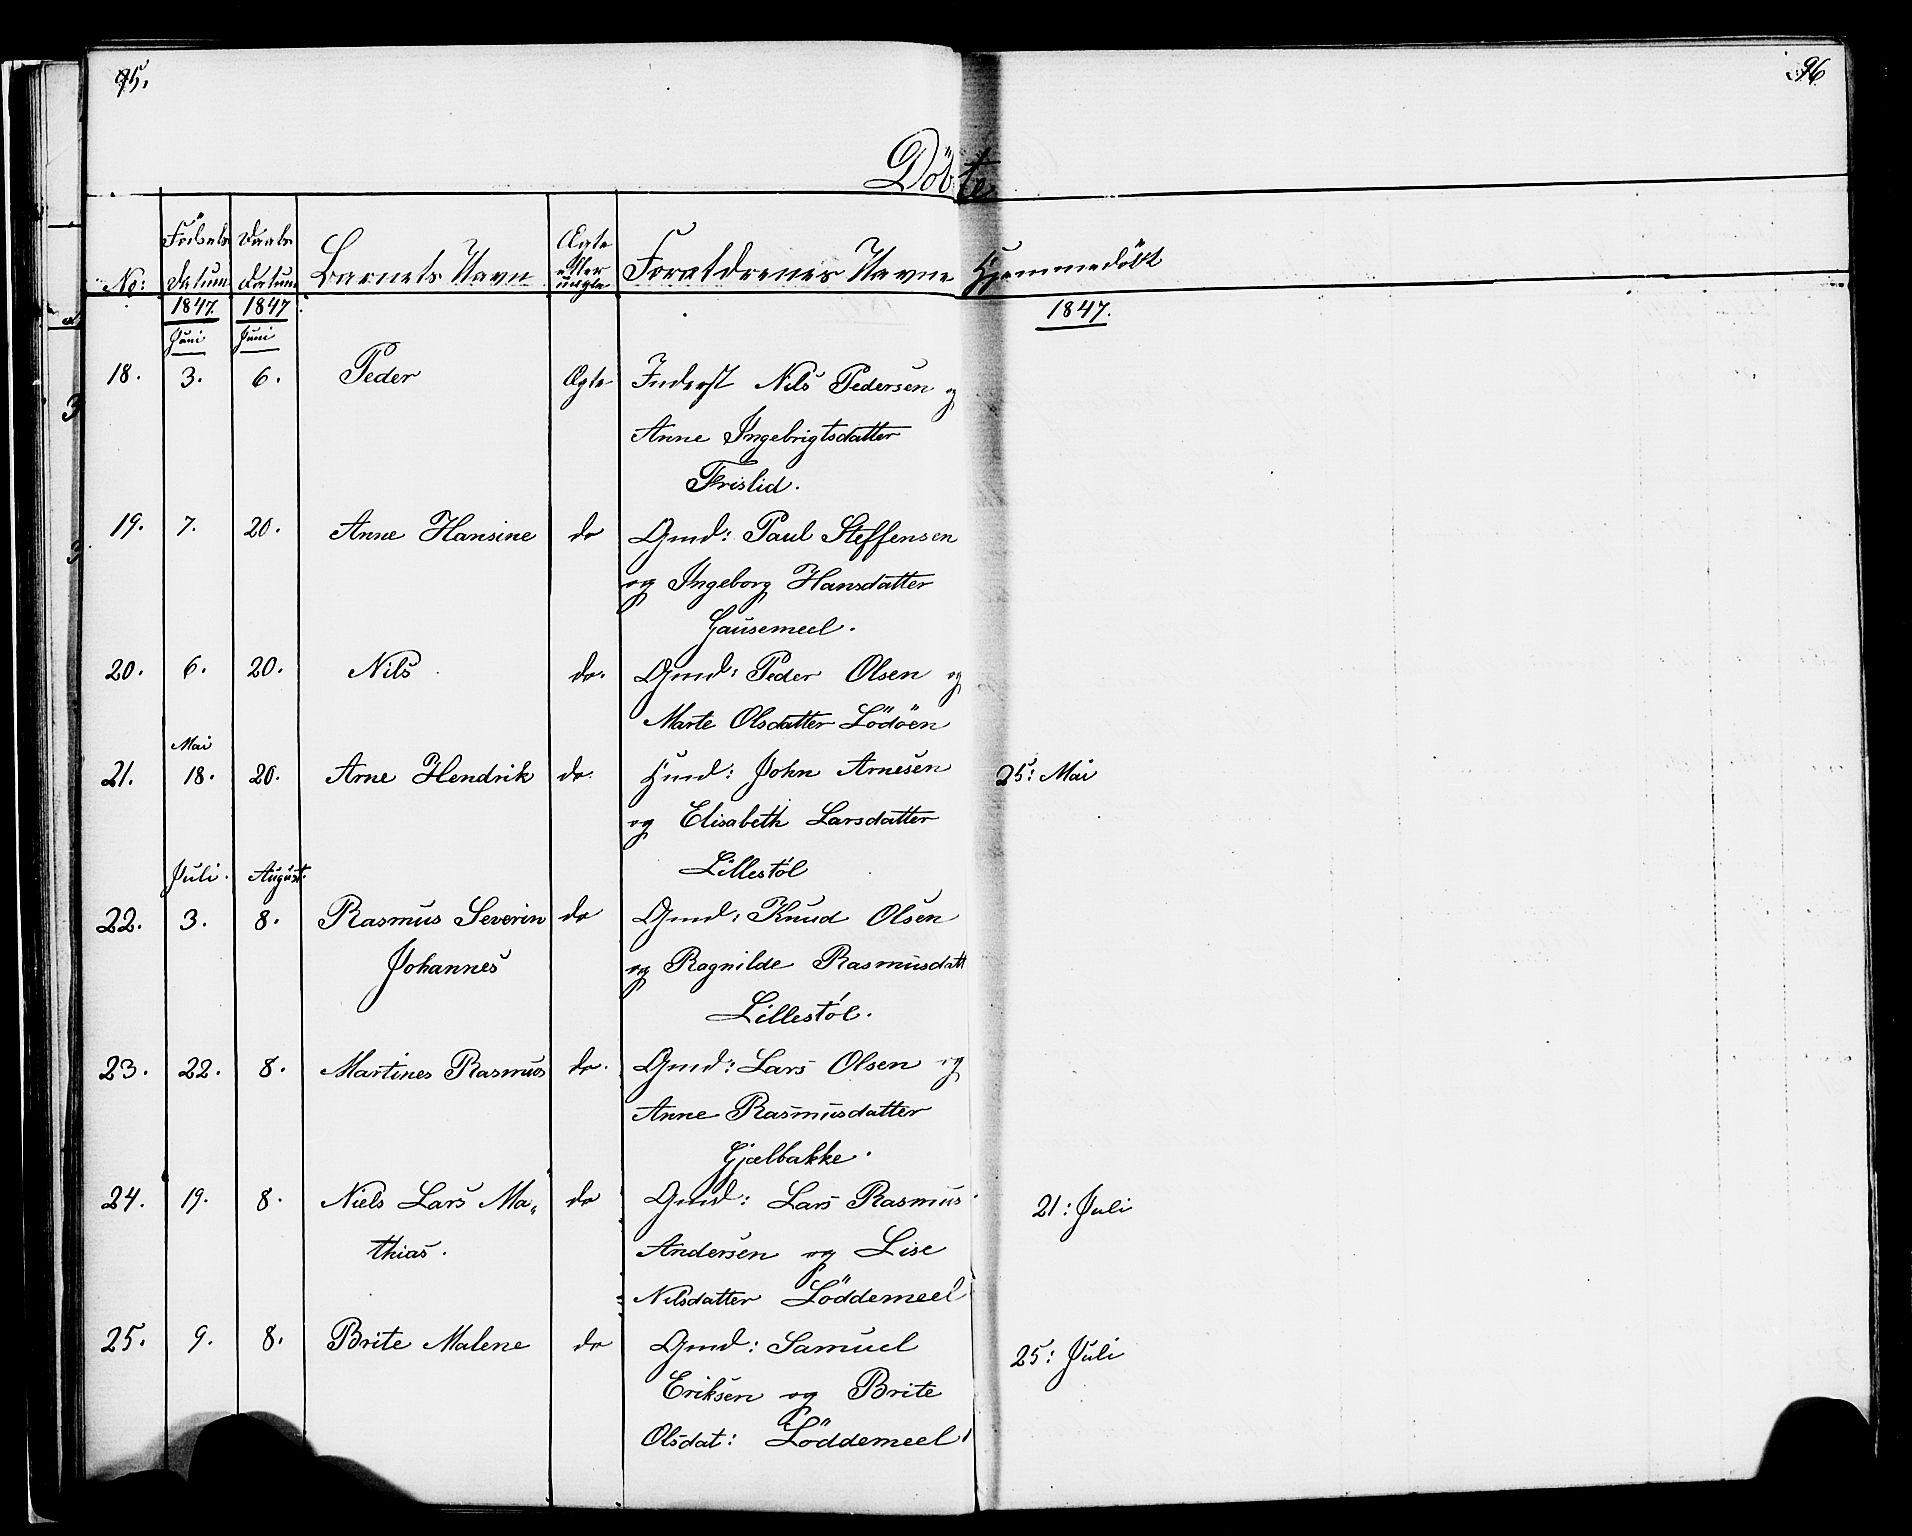 95.
96.
Döbte
No: Födsels Datum Daabs Datum Barnets Navn Ægte eller uægte Forældrenes Navne Hjemmedöbt
1847. 1847 1847.
Juni Juni
18. 3. 6. Peder Ægte Inderst Nils Pedersen og
Anne Ingebrigtsdatter
Frislid.
19. 7. 20. Anne Hansine do Gmd: Paul Steffensen
og Ingeborg Hansdatter
Gausemeel.
20. 6. 20. Nils do. Gmd: Peder Olsen og
Marte Olsdatter Lödöen
Mai
21. 18. 20. Arne Hendrik do. Hmd: John Arnesen 25: Mai
og Elisabeth Larsdatter
Lillestöl
Juli. August.
22. 3. 8. Rasmus Severin do Gmd: Knud Olsen
Johannes og Ragnilde Rasmusdatt
Lillestöl.
23. 22. 8. Martines Rasmus do. Gmd: Lars Olsen og
Anne Rasmusdatter
Gjælbakke.
24. 19. 8. Niels Lars Ma„ do Gmd: Lars Rasmus 21: Juli
thias. Andersen og Lise
Nilsdatter Löddemeel
25. 9. 8. Brite Malene do Gmd: Samuel 25: Juli
Eriksen og Brite
Olsdat: Löddemeel